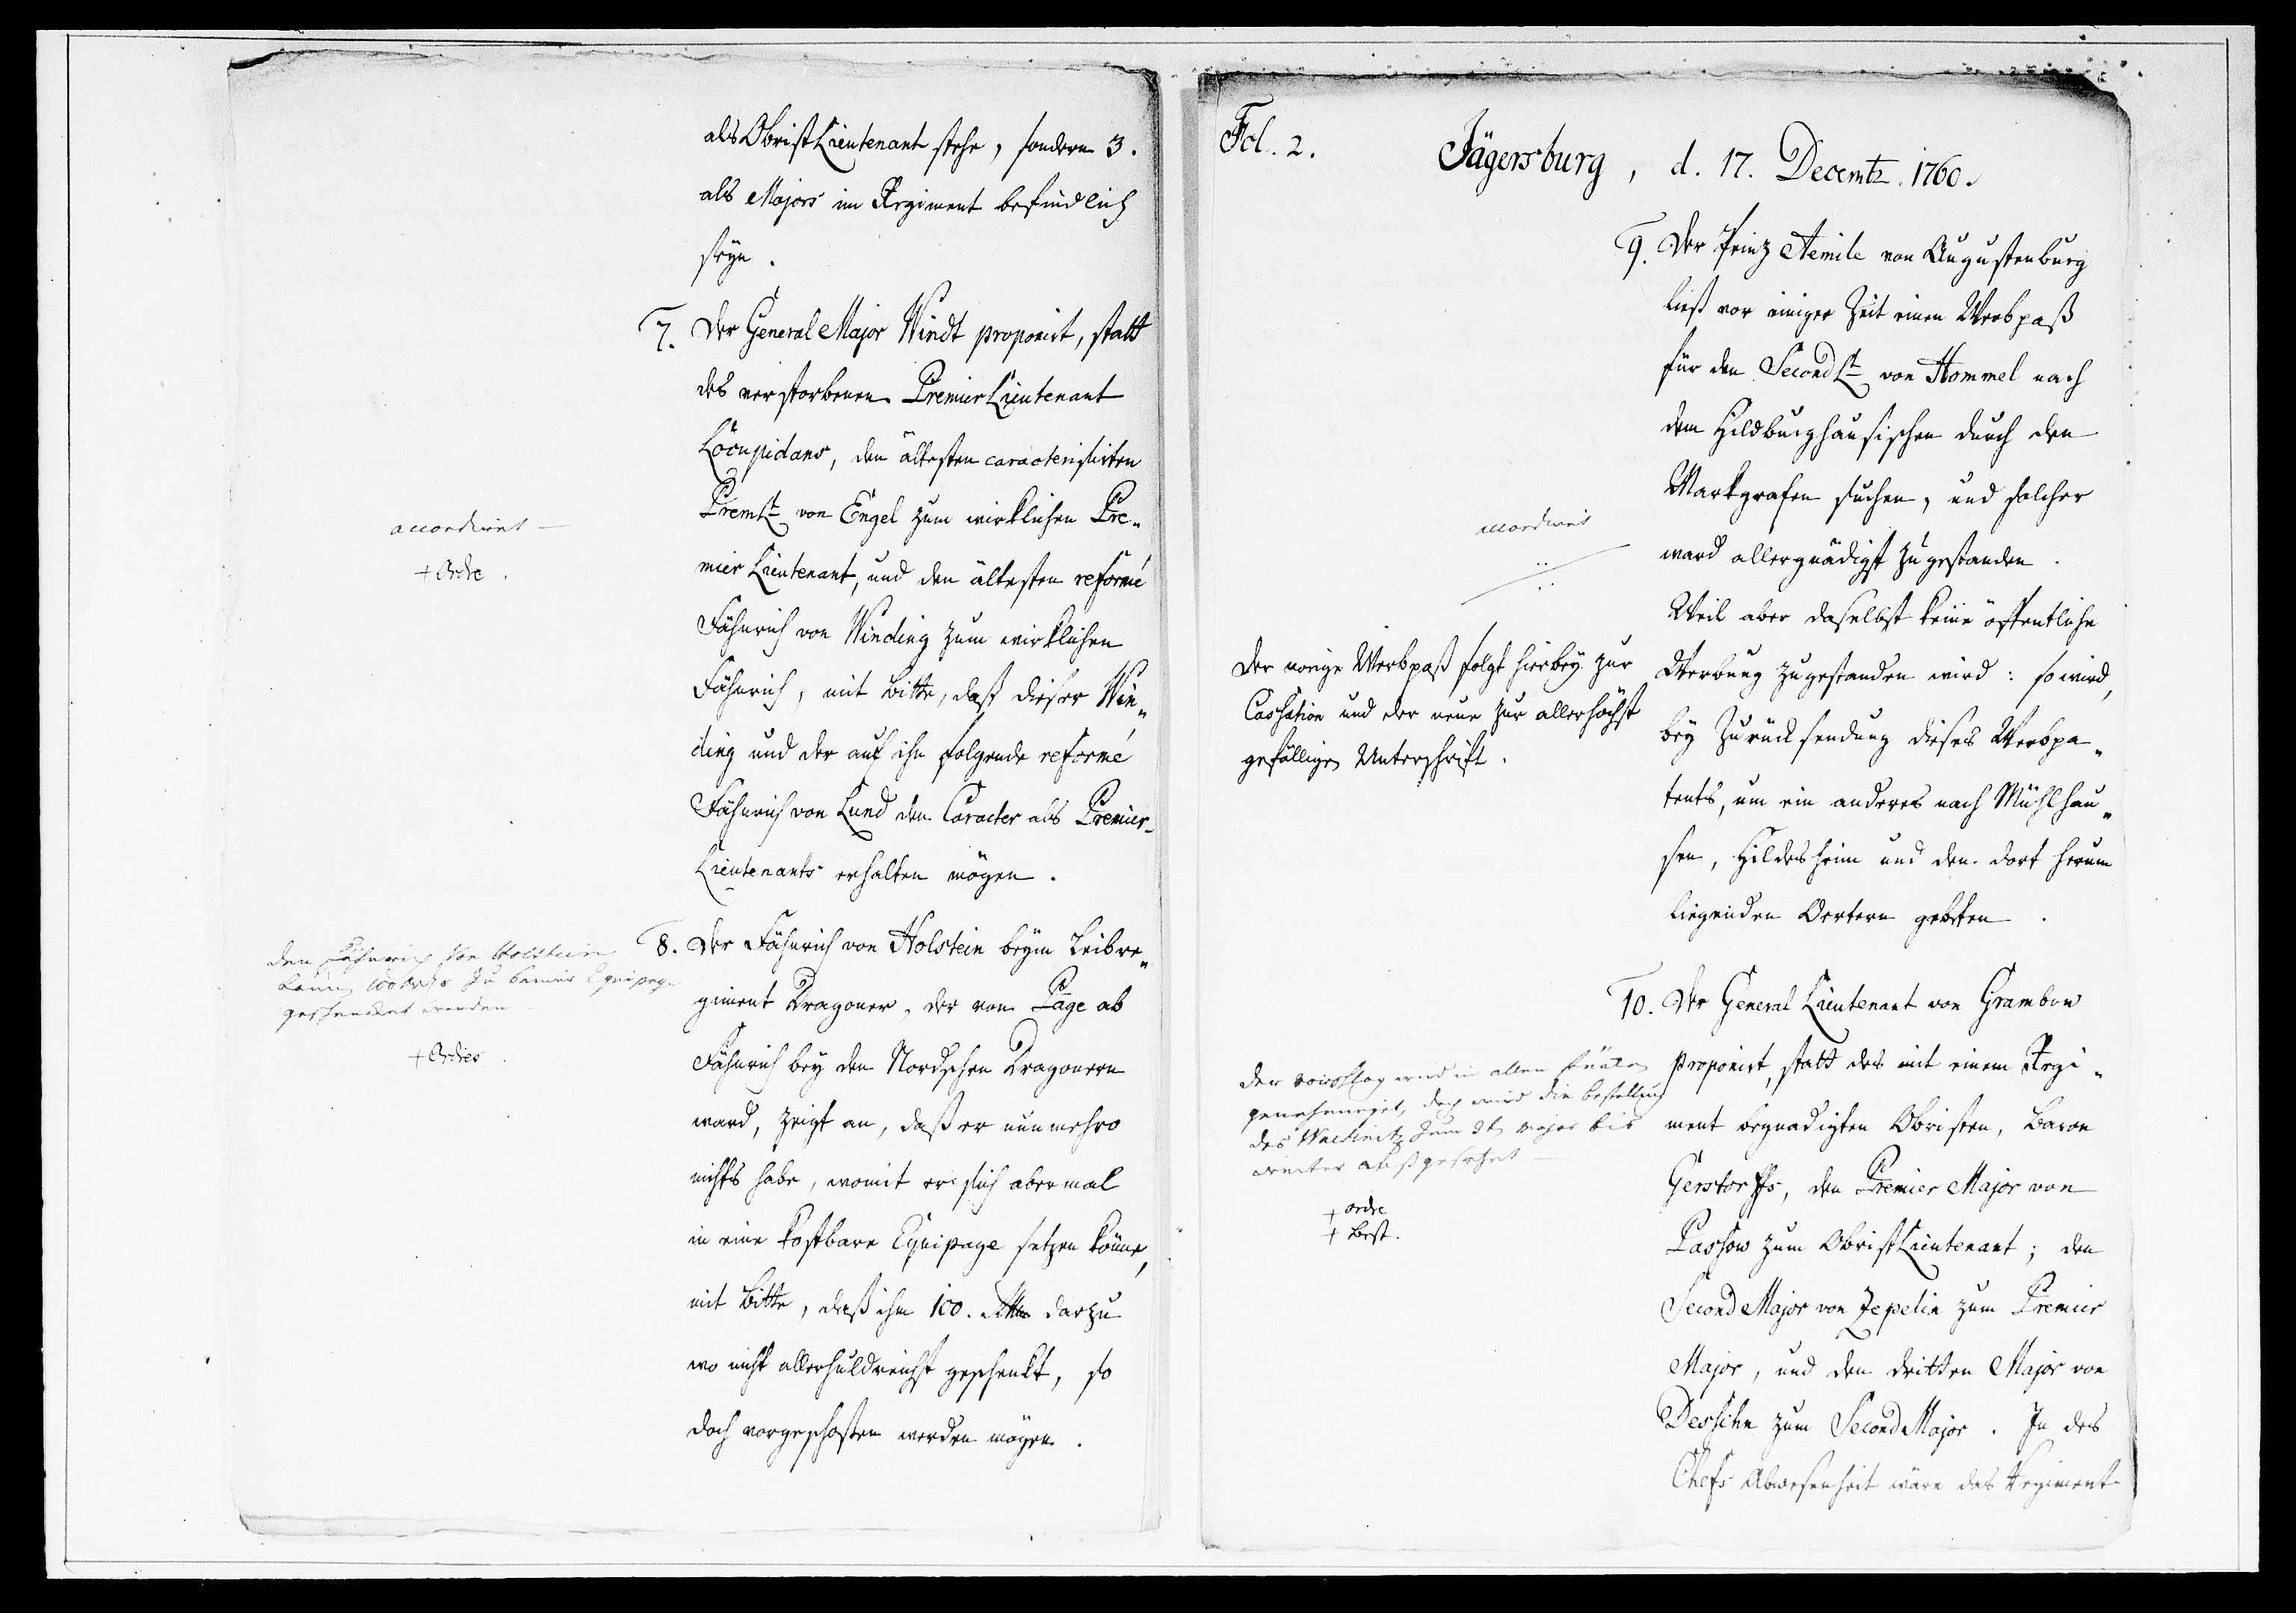 als Obrist Lieutenant stehe, sondern 3.
als Majors im Regiment befindlich
seyn.
7. Der General Major Windt proponirt, statt
des verstorbenen Premier Lieutenant
den ältesten caracterisirten
Premlt von Engel zum wirklichen Pre„
mier Lieutenant, und den ältesten reformé
Fähnrich von Winding zum wirklichen
Fähnrich, mit Bitte, daß dieser Win„
ding und der auf ihn folgende reformé
Fähnrich von Lund den Caracter als Premier-
Lieutenants erhalten mögen.
accordiret —
+ Ordre.
8. Der Fähnrich von Holstein beym Leibre„
giment Dragoner, der vom Page ab
Fähnrich bey den Nordschen Dragonern
ward, zeigt an, daß er nunmehro
nichts habe, womit er sich abermal
in eine kostbare Equipage setzen könne,
mit Bitte, daß ihm 100. Rthlr darzu
wo nicht allerhuldreichst geschenkt, so
doch vorgeschossen werden mögen.
den Fähnrich von Holstein
100 zu seiner Equipage
geschencket werden —
+ Ordres.
Fol. 2.
Jägersburg, d. 17. Decembr. 1760.
9. Der Prinz Aemile von Augustenburg
ließ vor einiger Zeit einen Werbpaß
für den Second Lt von Hommel nach
dem Hildburghausischen durch den
Markgrafen suchen, und solcher
ward allergnädigst zugestanden.
Weil aber daselbst keine öffentliche
Werbung zugestanden wird: so wird,
bey Zurücksendung dieses Werbpa„
tents, um ein anderes nach Mühlhau„
sen, Hildesheim und den dort herum
liegenden Oertern gebeten.
accordiret
Der vorige Werbpaß folgt hierbey zur
Cassation und der neue zur allerhöchst
gefälligen Unterschrift.
10. Der General Lieutenant von Grambow
proponirt, statt des mit einem Regi„
ment begnadigten Obristen, Baron
Gerstorffs, den Premier Major von
Passow zum Obrist Lieutenant; den
Second Major von Zepelin zum Premier
Major, und den dritten Major von
zum Second Major. In des
Chefs Abwesenheit wäre das Regiment
der Vorschlag wird in allen
genehmiget, doch wird die Bestellung
des zum 3t Major bis
weiter ausgesetzet —
+ ordre
+ Best.